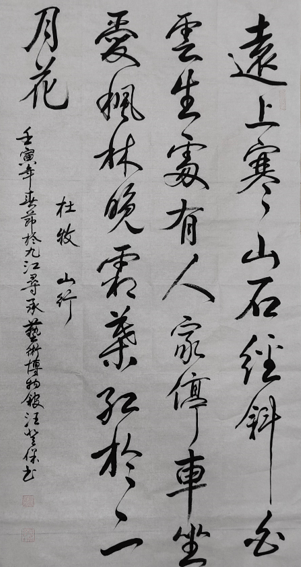 遠上寒山石徑斜白
雲生處有人家停車坐
愛楓林晚霜葉紅於二
月花
杜牧 山行
壬寅年春節於九江尋承藝術博物館汪保书